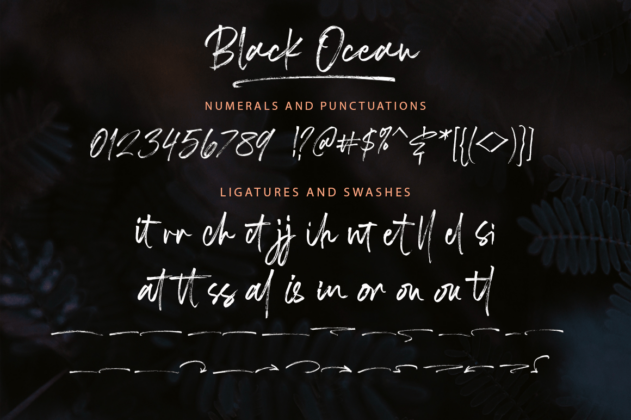 Black Ocean
NUMERALS AND PUNCTUATIONS
0123456789 !?@#$%^&*[{(<>)}]
LIGATURES AND SWASHES
it rr ch ot jj ih nt et ll el si
at tt ss al is in or on ou tl